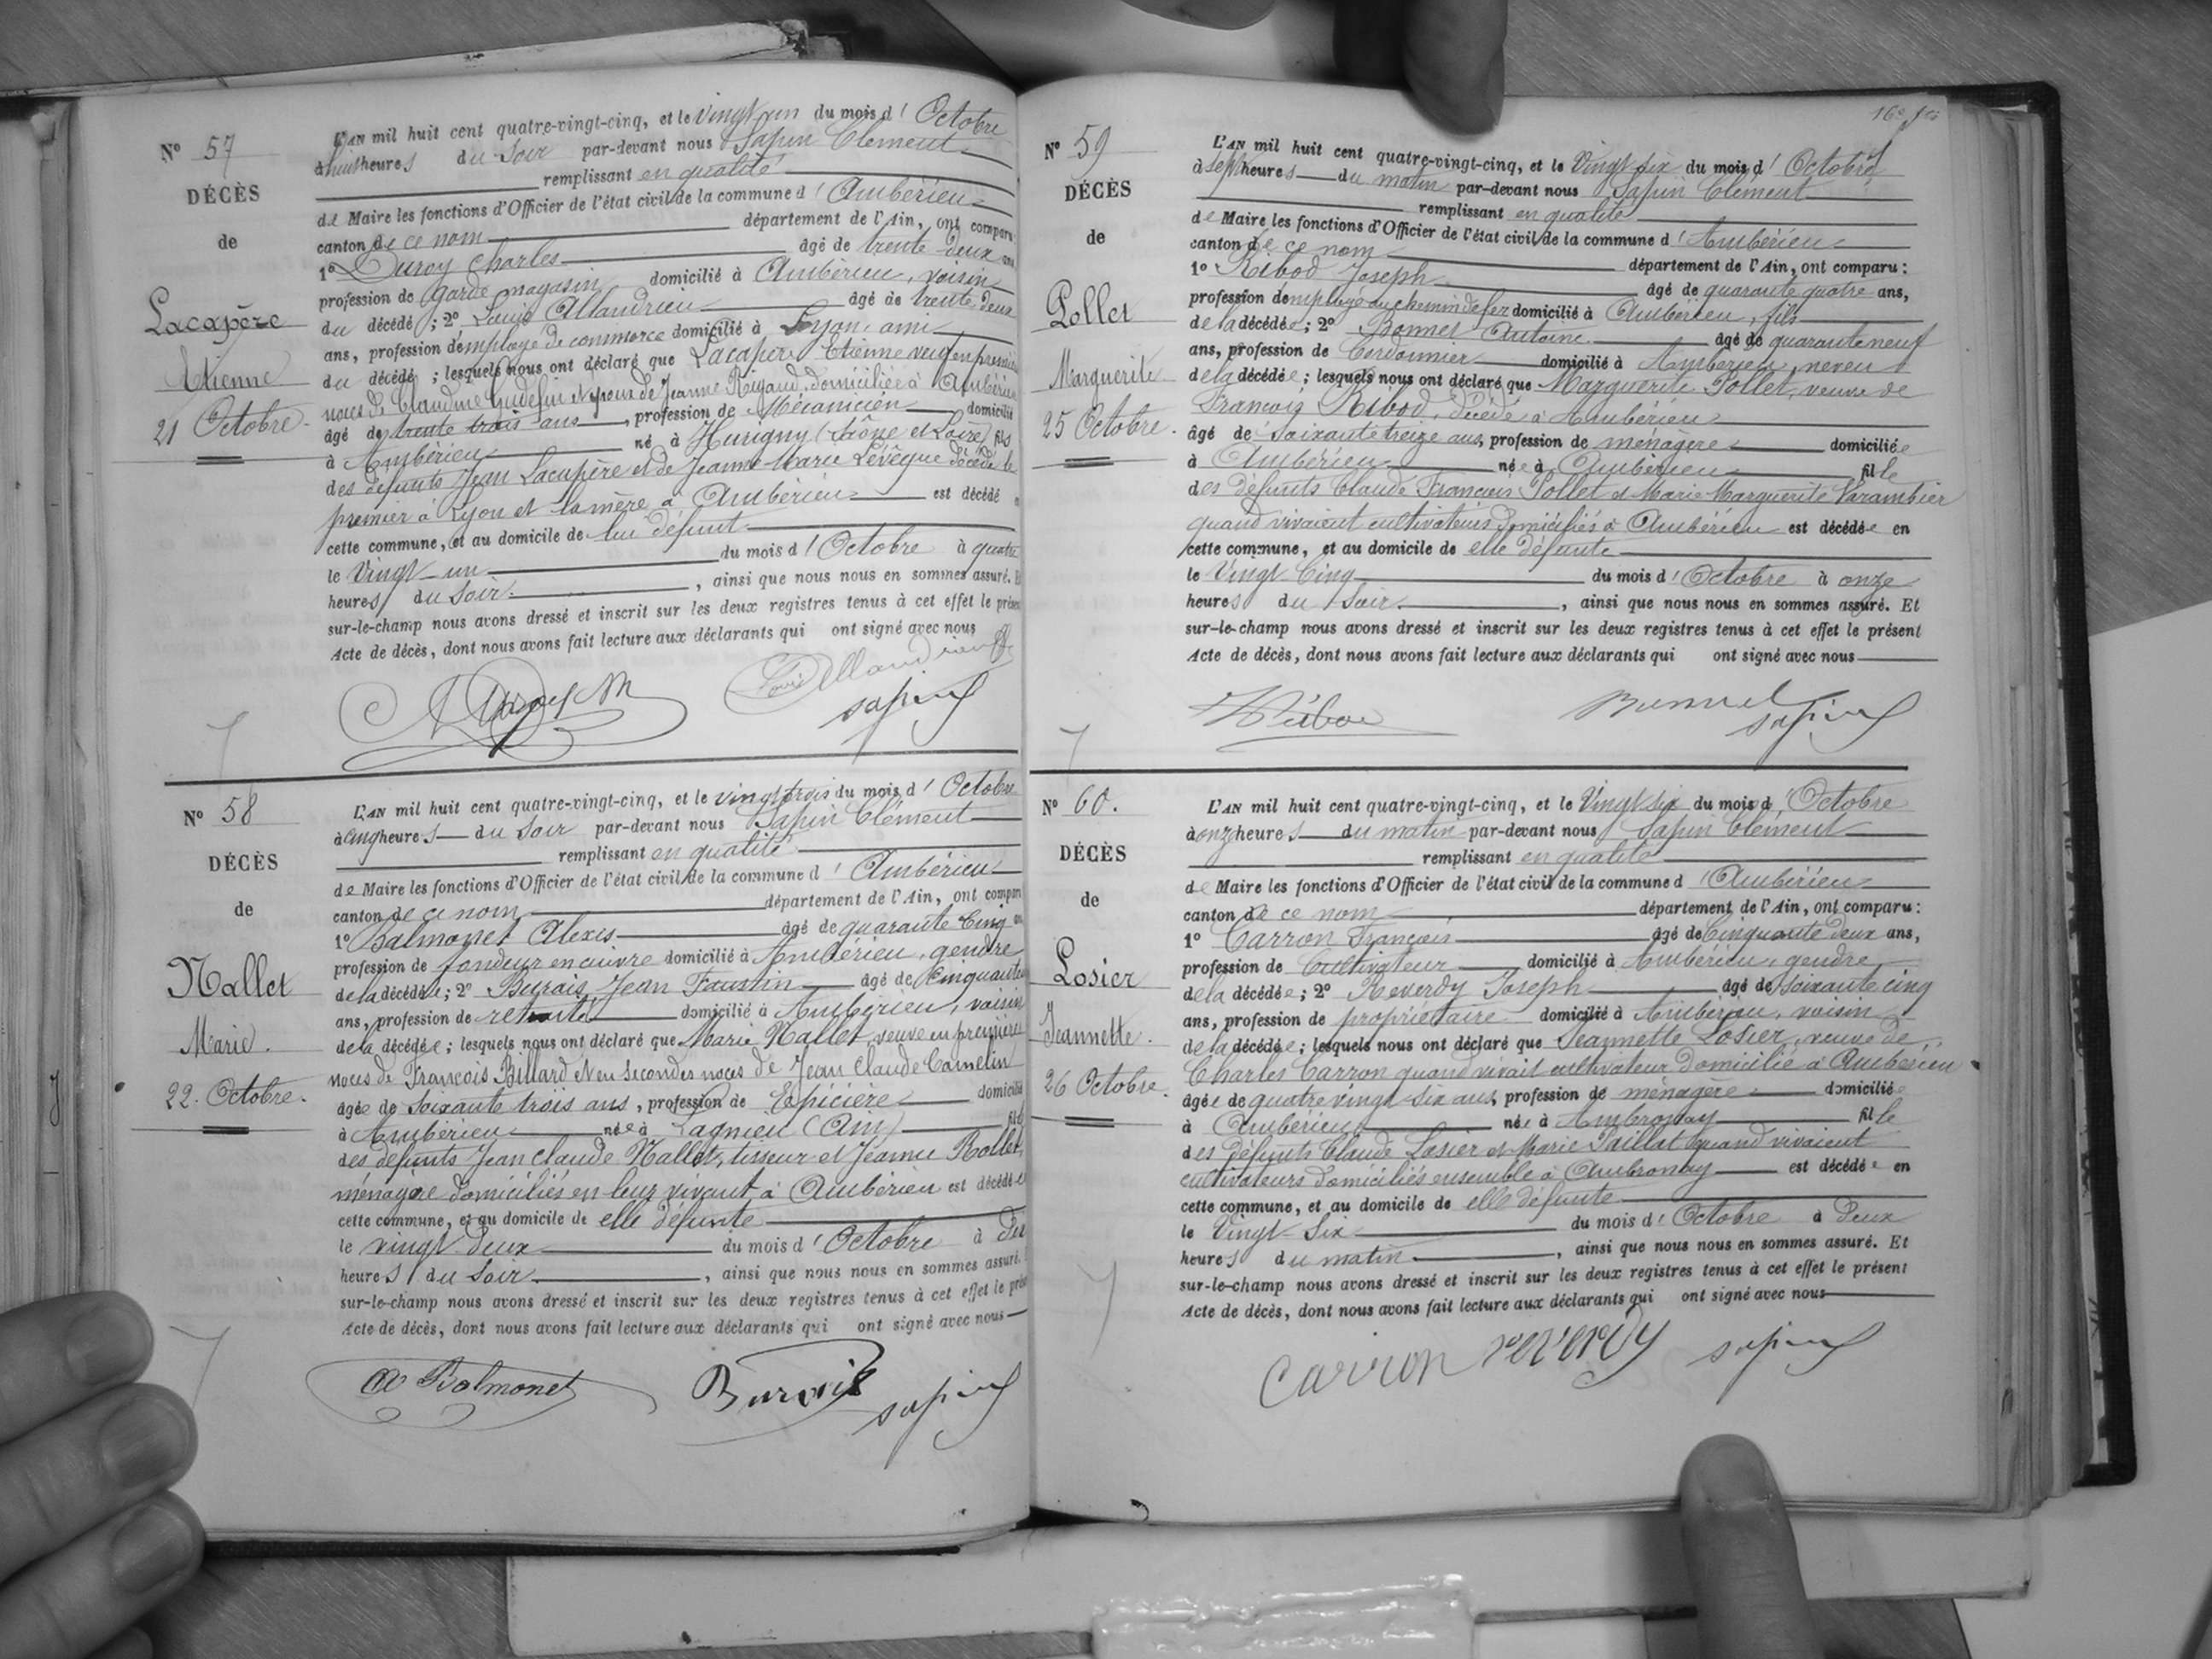 Nº 57
DÉCÈS
de
Lacapère
Etienne
21 Octobre.
L'AN mil huit cent quatre-vingt-cinq, et le vingt un du mois d' Octobre
à huit heures du Soir par-devant nous Sapin Clément
remplissant en qualité
de Maire les fonctions d'Officier de l'état civil de la commune d' Ambérieu
canton de ce nom département de l'Ain, ont comparu
1º Duroy Charles âgé de trente deux ans
profession de garde magasin domicilié à Ambérieu, voisin
du décédé ; 2º Louis Allandrieu âgé de trente deux
ans, profession d'employé de commerce domicilié à Lyon, ami
du décédé ; lesquels nous ont déclaré que Lacapère Etienne veuf en premières
noces de Claudine époux de Jeanne Rigaud, domiciliée à Ambérieu
âgé de trente trois ans, profession de Mécanicien domicilié
à Ambérieu né à Hurigny (Saône et Loire) fils
des défunts Jean Lacapère et de Jeanne Marie Levèque décédé le
premier à Lyon et la mère à Ambérieu est décédé
cette commune, et au domicile de lui défunt
le Vingt-un du mois d' Octobre à quatre
heures du Soir. , ainsi que nous nous en sommes assuré. Et
sur-le-champ nous avons dressé et inscrit sur les deux registres tenus à cet effet le présent
Acte de décès, dont nous avons fait lecture aux déclarants qui ont signé avec nous
Louis Allandrieu
Sapin
Nº 58
DÉCÈS
de
Nallet
Marie.
22. Octobre.
L'AN mil huit cent quatre-vingt-cinq, et le vingt trois du mois d' Octobre
à cinq heures du Soir par-devant nous Sapin Clément
remplissant en qualité
de Maire les fonctions d'Officier de l'état civil de la commune d' Ambérieu
canton de ce nom département de l'Ain, ont comparu
1º Balmonet Alexis âgé de quarante Cinq ans
profession de fondeur en cuivre domicilié à Ambérieu, gendre
de la décédée ; 2º Burais Jean Faustin âgé de Cinquante
ans, profession de retraité domicilié à Ambérieu, voisin
de la décédée ; lesquels nous ont déclaré que Marie Nallet, veuve en premières
noces de François Billard et en Secondes noces de Jean Claude Camelin
âgée de Soixante trois ans, profession de Epicière domicilié
à Ambérieu née à Lagnieu (Ain) fille
des défunts Jean Claude Nallet, tisseur et Jeanne Rollet,
ménagère domiciliés en leur vivant à Ambérieu est décédée
cette commune, et au domicile de elle défunte
le vingt deux du mois d' Octobre à dix
heures du Soir. , ainsi que nous nous en sommes assuré.
sur-le-champ nous avons dressé et inscrit sur les deux registres tenus à cet effet le présent
Acte de décès, dont nous avons fait lecture aux déclarants qui ont signé avec nous
A Balmonet Burais Sapin
Nº 59
DÉCÈS
de
Pollet
Marguerite
25 Octobre.
L'AN mil huit cent quatre-vingt-cinq, et le Vingt six du mois d' Octobre
à sept heures du matin par-devant nous Sapin Clément
remplissant en qualité
de Maire les fonctions d'Officier de l'état civil de la commune d' Ambérieu
canton de ce nom département de l'Ain, ont comparu :
1º Ribod Joseph âgé de quarante quatre ans,
profession d'employé au chemin de fer domicilié à Ambérieu, fils
de la décédée ; 2º Bonnet Antoine âgé de quarante neuf
ans, profession de Cordonnier domicilié à Ambérieu, neveu
de la décédée ; lesquels nous ont déclaré que Marguerite Pollet, veuve de
François Ribod, décédé à Ambérieu
âgé de Soixante treize ans, profession de ménagère domiciliée
à Ambérieu née à Ambérieu fille
des défunts Claude François Pollet et Marie Marguerite Varambier
quand vivaient cultivateurs domiciliés à Ambérieu est décédée en
cette commune, et au domicile de elle défunte
le Vingt-Cinq du mois d' Octobre à onze
heures du Soir. , ainsi que nous nous en sommes assuré. Et
sur-le-champ nous avons dressé et inscrit sur les deux registres tenus à cet effet le présent
Acte de décès, dont nous avons fait lecture aux déclarants qui ont signé avec nous
Ribod Bonnet
Sapin
Nº 60.
DÉCÈS
de
Losier
Jeannette.
26 Octobre.
L'AN mil huit cent quatre-vingt-cinq, et le Vingt six du mois d' Octobre
à onze heures du matin par-devant nous Sapin Clément
remplissant en qualité
de Maire les fonctions d'Officier de l'état civil de la commune d' Ambérieu
canton de ce nom département de l'Ain, ont comparu :
1º Carron François âgé de Cinquante deux ans,
profession de Cultivateur domicilié à Ambérieu, gendre
de la décédée ; 2º Reverdy Joseph âgé de Soixante cinq
ans, profession de propriétaire domicilié à Ambérieu, voisin
de la décédée ; lesquels nous ont déclaré que Jeannette Losier, veuve de
Charles Carron quand vivait cultivateur domicilié à Ambérieu
âgée de quatre vingt-six ans, profession de ménagère domiciliée
à Ambérieu née à Ambronay fille
des défunts Claude Losier et Marie Paillat quand vivaient
cultivateurs domiciliés ensemble à Ambronay est décédée en
cette commune, et au domicile de elle défunte
le Vingt-Six du mois d' Octobre à Deux
heures du matin , ainsi que nous nous en sommes assuré. Et
sur-le-champ nous avons dressé et inscrit sur les deux registres tenus à cet effet le présent
Acte de décès, dont nous avons fait lecture aux déclarants qui ont signé avec nous
Carron reverdy Sapin